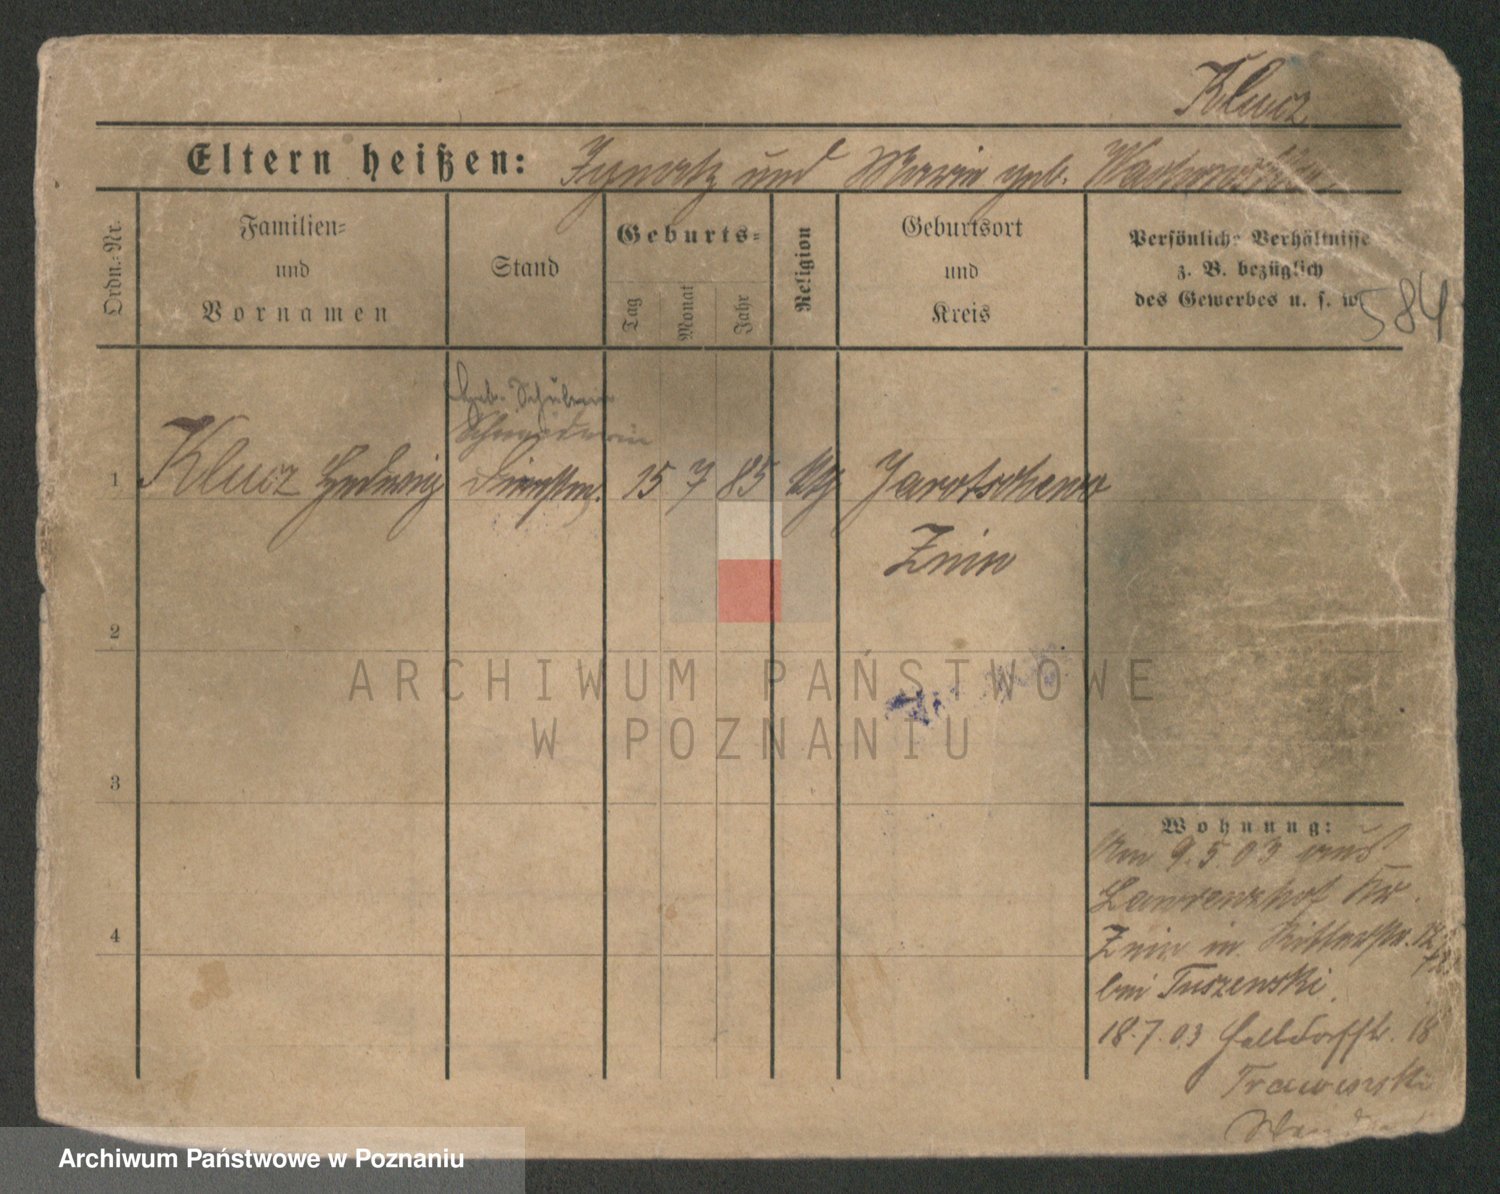 Klucz
Eltern heißen: Ignatz und Marie geb.
Ordn.-Nr.
Familien-
und
Vornamen
Stand
Geburts-
Tag
Monat
Jahr
Religion
Geburtsort
und
Kreis
Persönliche Verhältnisse
z. B. bezüglich
des Gewerbes u. s. w.
584
Schneiderin
1 Klucz Hedwig Dienstm. 15 7 85 kth Jarotschewo
Znin
2
3
4
Wohnung:
Am 9.5.03 aus
Lawrenzhof Kr.
Znin in Ritterstr. 12
bei Tuszenski.
18.7.03 Halbdorfstr. 18
Trawinski
ARCHIWUM PAŃSTWOWE
W POZNANIU
Archiwum Państwowe w Poznaniu